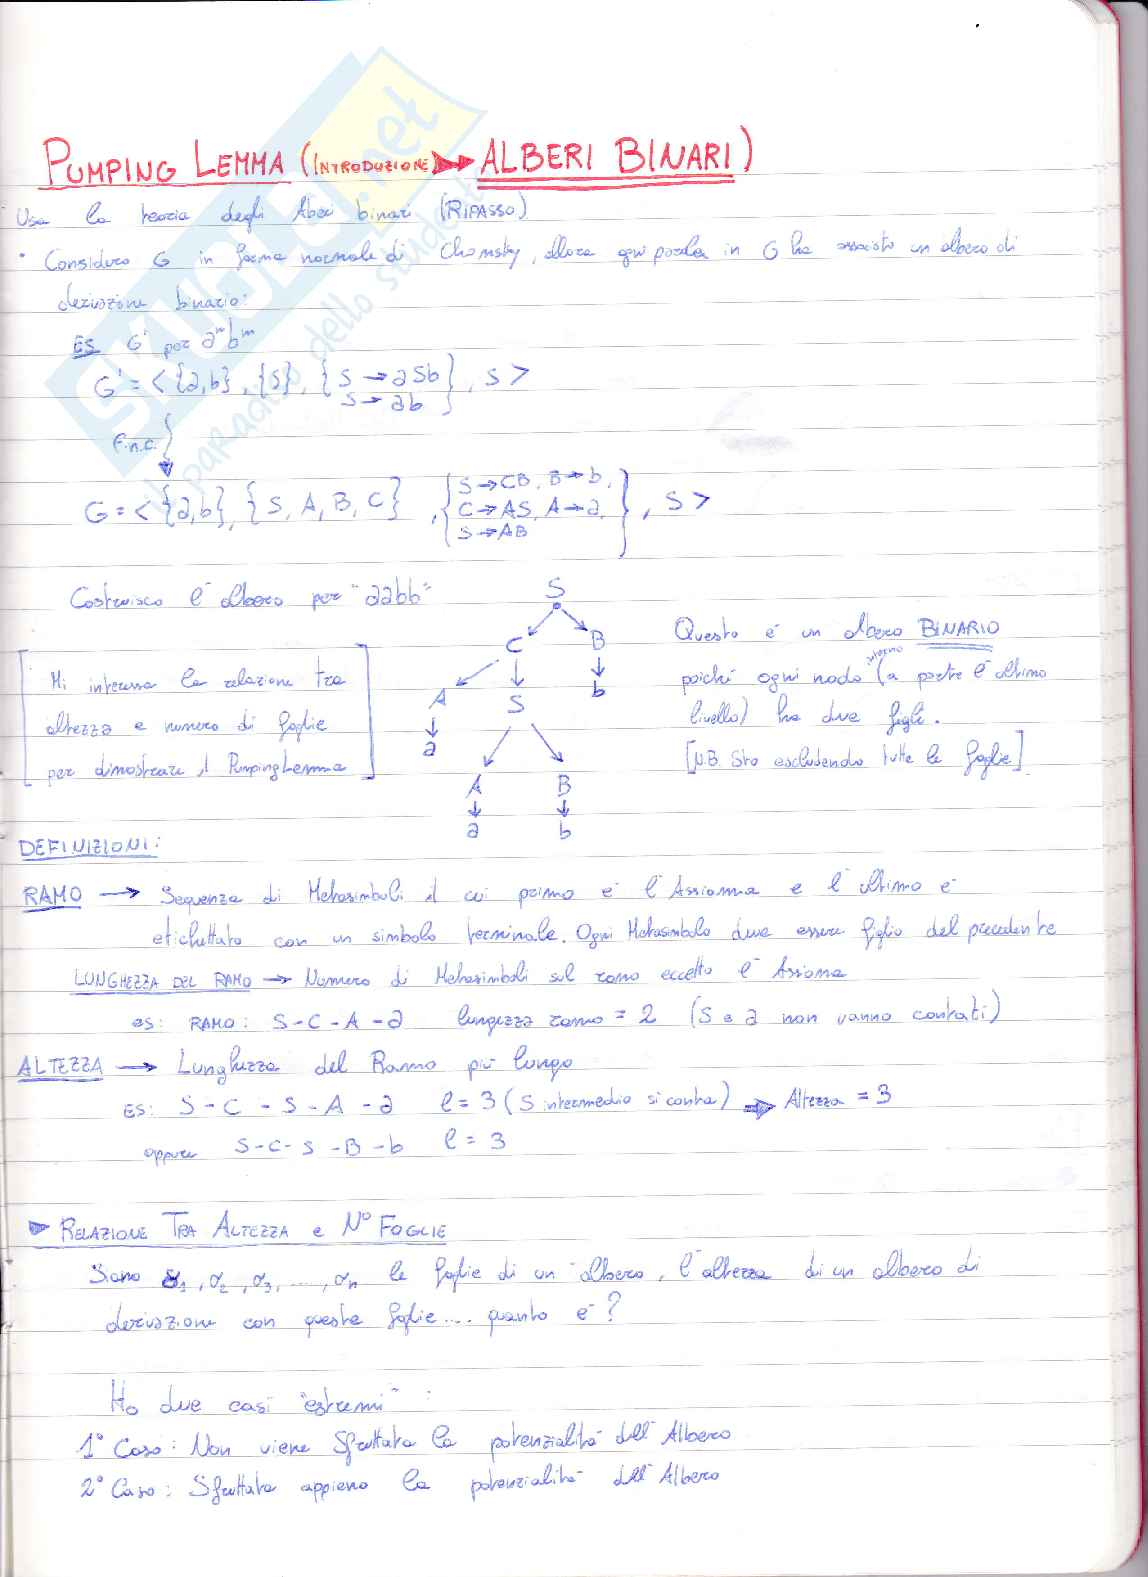 PUMPING LEMMA (INTRODUZIONE → ALBERI BINARI)
Usa la teoria degli Alberi binari (RIPASSO)
• Considero G in forma normale di Chomsky, allora ogni parola in G ha associato un albero di
derivazione binario:
ES G' per aⁿbⁿ
G' = < {a,b}, {S}, { S → aSb
S → ab }, S >
F.N.C.
G = < {a,b}, {S, A, B, C}, { S → CB, B → b,
C → AS, A → a,
S → AB }, S >
Costruisco l'albero per "aabb"
S
C B
A S b
a
A B
a b
Questo è un albero BINARIO
poiché ogni nodo interno (a parte l'ultimo
livello) ha due figli.
[N.B. Sto escludendo tutte le foglie]
[Mi interessa la relazione tra
altezza e numero di foglie
per dimostrare il Pumping Lemma]
DEFINIZIONI:
RAMO → Sequenza di Metasimboli il cui primo è l'Assioma e l'ultimo è
etichettato con un simbolo terminale. Ogni Metasimbolo deve essere figlio del precedente
LUNGHEZZA DEL RAMO → Numero di Metasimboli sul ramo eccetto l'Assioma
es: RAMO: S - C - A - a lungezza ramo = 2 (S e a non vanno contati)
ALTEZZA → Lunghezza del Ramo più lungo
ES: S - C - S - A - a l = 3 (S intermedio si conta) ⇒ Altezza = 3
oppure S - C - S - B - b l = 3
► RELAZIONE TRA ALTEZZA e N° FOGLIE
Siano α₁, α₂, α₃, ...., αₙ le foglie di un albero, l'altezza di un albero di
derivazione con queste foglie.... quanto è?
Ho due casi "estremi":
1° Caso: Non viene sfruttata la potenzialità dell'Albero
2° Caso: Sfruttata appieno la potenzialità dell'Albero
SKUOLA.net
il paradiso dello studente